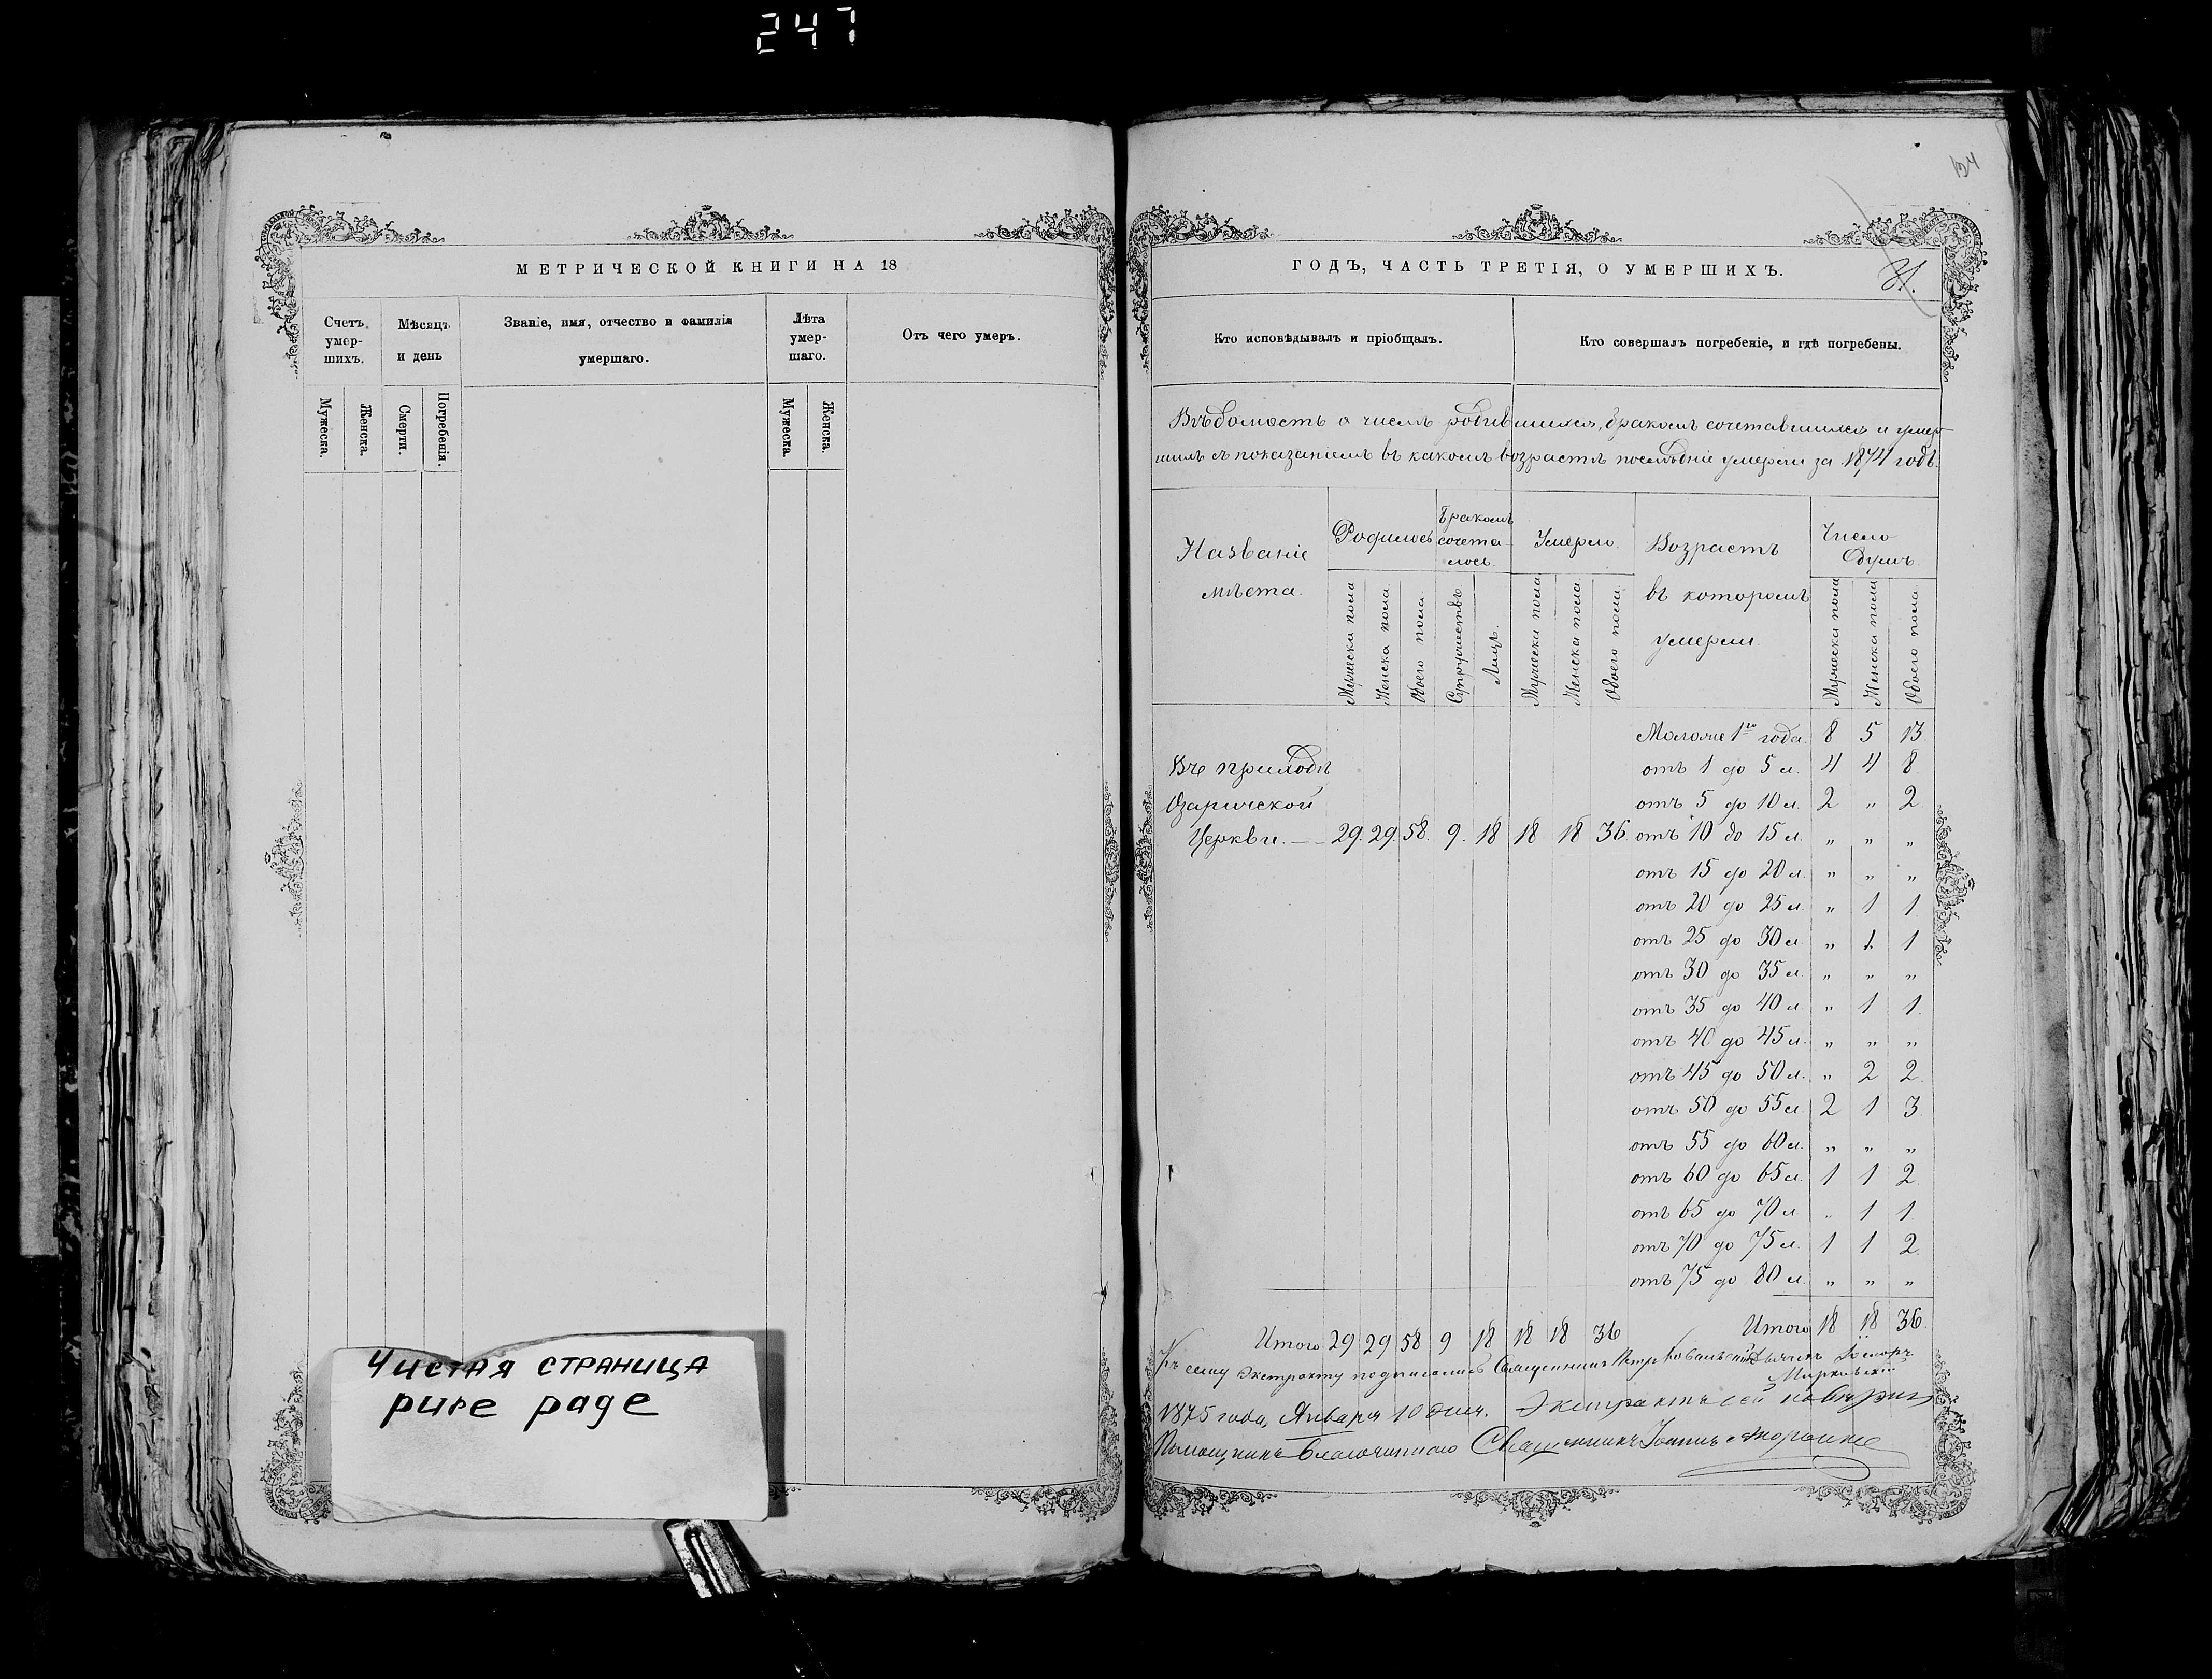 247
МЕТРИЧЕСКОЙ КНИГИ НА 18
Счетъ умер-шихъ.
Мѣсяцъ и день
Званіе, имя, отчество и фамилія умершаго.
Лѣта умер-шаго.
Отъ чего умеръ.
Мужеска.
Женска.
Смерти.
Погребенія.
Мужеска.
Женска.
Чистая страница
pure page
124
ГОДЪ, ЧАСТЬ ТРЕТІЯ, О УМЕРШИХЪ.
Кто исповѣдывалъ и пріобщалъ.
Кто совершалъ погребеніе, и гдѣ погребены.
Вѣдомость о числѣ родившихся, бракомъ сочетавшихся и умер-
шихъ съ показаніемъ въ какомъ возрастѣ послѣдніе умерли за 1874 годъ.
Названіе мѣста.
Родилось
Бракомъ сочета-лось.
Умерло.
Возрастъ въ которомъ умерли
Число Душъ.
Мужеска пола
Женска пола
Обоего пола
Супружествъ
Лицъ.
Мужеска пола
Женска пола
Обоего пола
Мужеска пола
Женска пола
Обоего пола
Моложе 1го года. 8 5 13
Въ приходѣ
отъ 1 до 5 л. 4 4 8
Озаричской
отъ 5 до 10 л. 2 „ 2
Церкви. — 29. 29. 58. 9. 18 18 18 36 отъ 10 до 15 л. „ „ „
отъ 15 до 20 л. „ „ „
отъ 20 до 25 л. „ 1 1
отъ 25 до 30 л. „ 1. 1
отъ 30 до 35 л. „ „ „
отъ 35 до 40 л. „ 1 1.
отъ 40 до 45 л. „ „ „
отъ 45 до 50 л. „ 2 2.
отъ 50 до 55 л. 2 1 3.
отъ 55 до 60 л. „ „ „
отъ 60 до 65 л. 1 1 2.
отъ 65 до 70 л. „ 1 1.
отъ 70 до 75 л. 1 1 2.
отъ 75 до 80 л. „ „ „
Итого 29 29 58 9 18 18 18 36 Итого 18 18 36
Къ сему экстракту подписались Священникъ Петръ
1875 года, Января 10 дня. Экстрактъ сей повѣрялъ
Помощникъ Благочиннаго Священникъ Іоаннъ